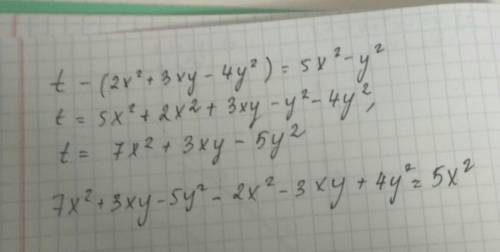 t - (2x² + 3xy - 4y²) = 5x² - y²
t = 5x² + 2x² + 3xy - y² - 4y²,
t = 7x² + 3xy - 5y²
7x² + 3xy - 5y² - 2x² - 3xy + 4y² = 5x²